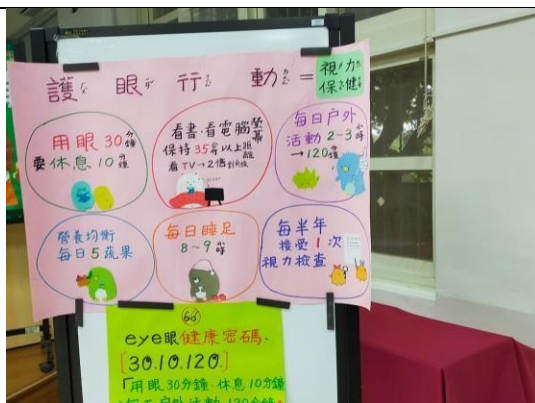 護眼行動=
視力
保健
用眼30分鐘
要休息10分鐘
看書、看電腦螢幕
保持35公分以上距離
看TV→2倍對角線
每日戶外
活動2~3小時
→120分鐘
營養均衡
每日5蔬果
每日睡足
8~9小時
每半年
接受1次
視力檢查
eye眼健康密碼、
[30.10.120.]
「用眼30分鐘、休息10分鐘
每天戶外活動120分鐘。